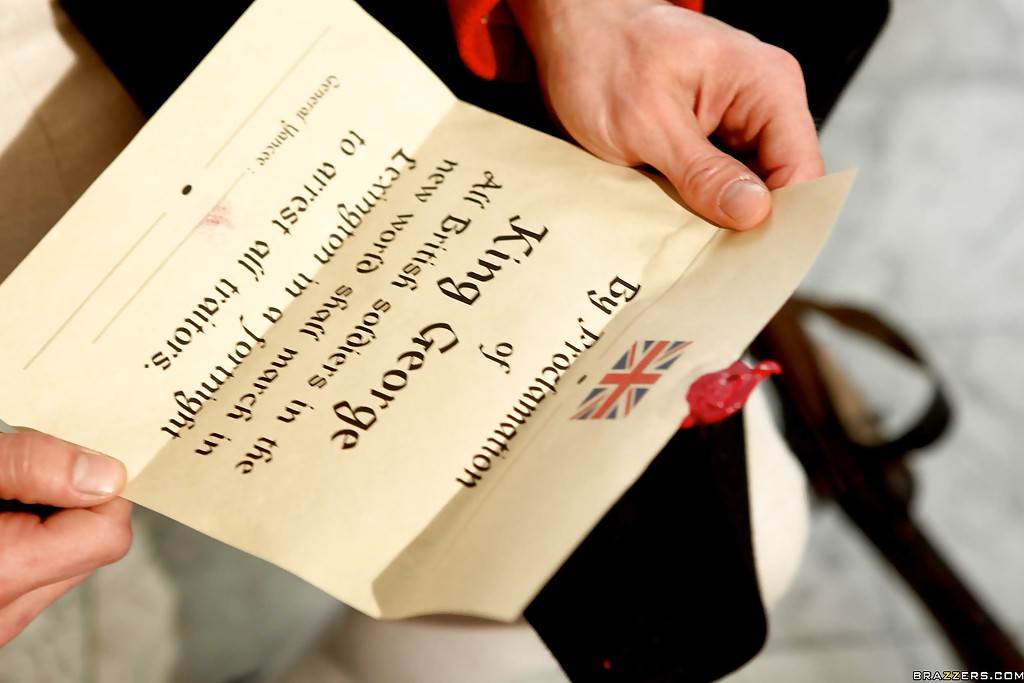 By Proclamation
of
King George
All British soldiers in the
new world shall march in
Lexington in a fortnight
to arrest all traitors.
General Yancee :
BRAZZERS.COM